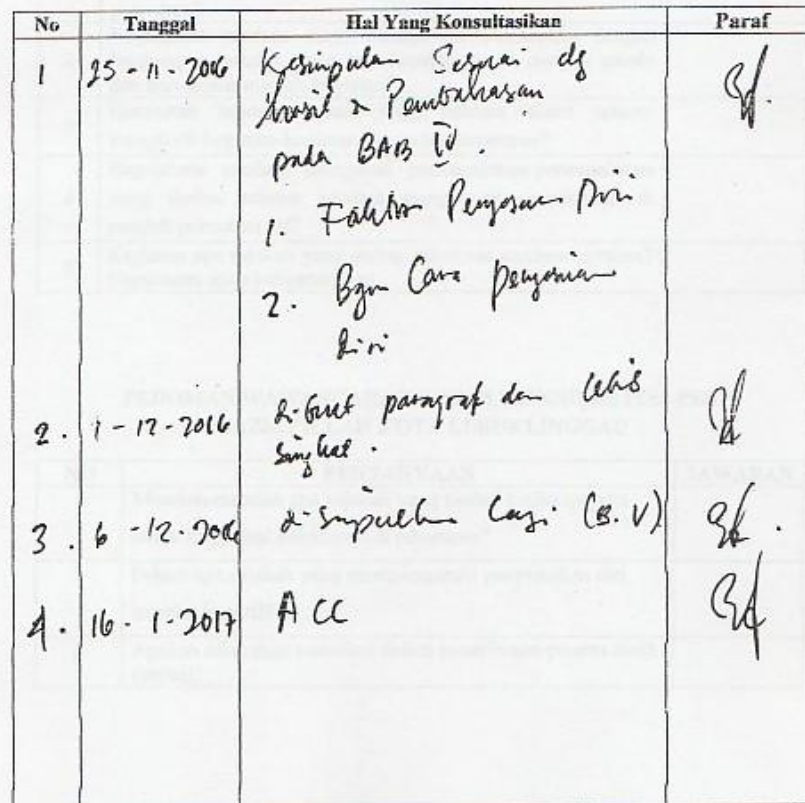 No Tanggal Hal Yang Konsultasikan Paraf
1 25-11-2016 Kesimpulan Sesuai dg
hasil & Pembahasan
pada BAB IV.
1. Faktor Penyesuaian Diri
2. Bgm Cara penyesuaian
diri
2. 1-12-2016 di buat paragraf dan lebih
singkat.
3. 6-12-2016 di simpulkan lagi (B.V)
4. 16-1-2017 ACC